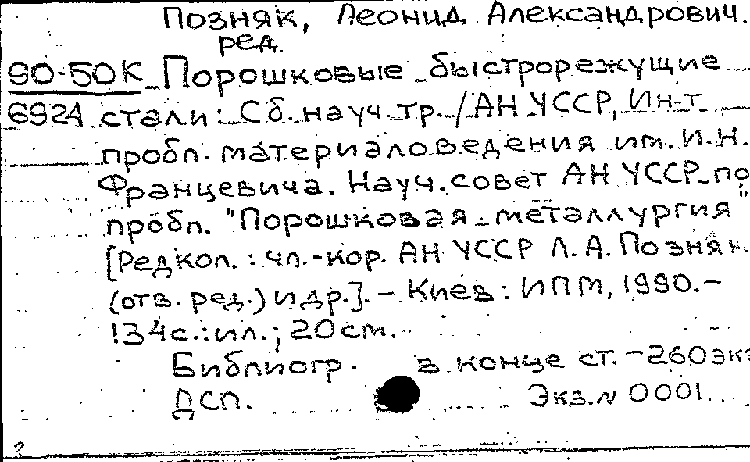 Позняк, Леонид Александрович.
ред.
90-50К Порошковые быстрорежущие
6924 стали: Сб. науч. тр. / АН УССР, Ин-т
пробл. материаловедения им. И.Н.
Францевича. Науч. совет АН УССР по
пробл. "Порошковая металлургия"
[Редкол.: чл.-кор. АН УССР Л. А. Позняк
(отв. ред.) и др.]. - Киев: ИПМ, 1990. -
134с.: ил.; 20см.
Библиогр. в конце ст. - 260экз
ДСП. Экз. N 0001.